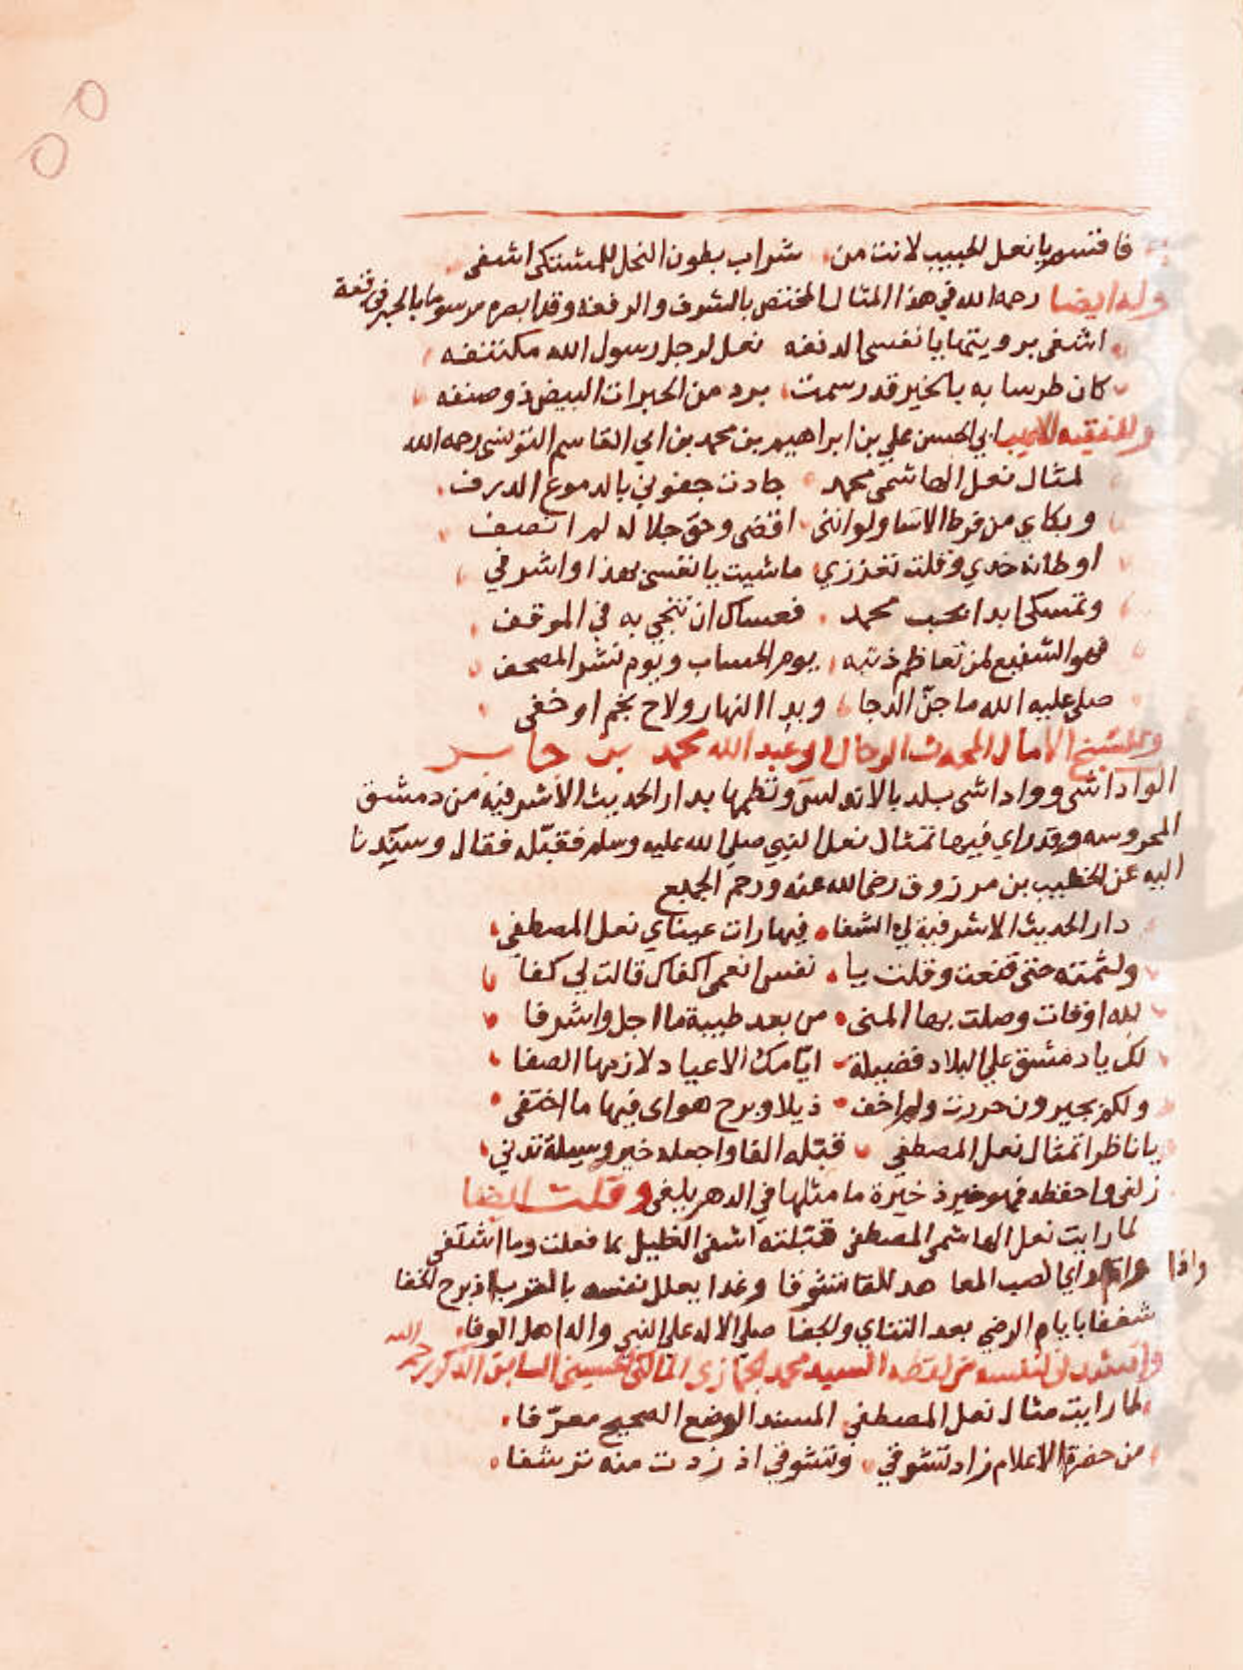 فاقسم يا نعل الحبيب لانت من شراب بطون النحل للمشتكى اشفى
وله ايضا رحمه الله في هذا المثال المختص بالشرف والرفعه وقد ابصره مرسوما بالحبر في رقعة
اشفى برويتها يا نفسى الدنفه نعل لرجل رسول الله مكتنفه
كان طرسا به بالخير قد رسمت برد من الحبرات البيض ذو صنفه
وللفقيه الاديب ابي الحسن علي بن ابراهيم بن محمد بن ابي القاسم التونسى رحمه الله
لمثال نعل الهاشمي محمد جادت جفوني بالدموع الدرف
وبكاي من فرط الاسا ولو انني اقضى وحق جلاله لم انصف
اوطاته خدي وقلت تعززي ما شيت يا نفسى بهذا واشرفي
وتمسكى ابدا بحب محمد فعساك ان تنجي به في الموقف
فهو الشفيع لمن تعاظم ذنبه يوم الحساب ويوم نشر المصحف
صلى عليه الله ما جن الدجا وبدا النهار ولاح نجم او خفى
وللشيخ الامام المحدث الرحال ابو عبد الله محمد بن جابر
الواداشى وواداشى بلد بالاندلس ونظمها بدار الحديث الاشرفيه من دمشق
المحروسه وقد راي فيها تمثال نعل النبي صلى الله عليه وسلم فقبله فقال وسيدنا
اليه عن الخطيب بن مرزوق رضى الله عنه ورحم الجميع
دار الحديث الاشرفية لي الشفا فيها رات عيناي نعل المصطفى
ولثمته حتى قنعت وقلت يا نفس انعمى اكفاك قالت لي كفا
لله اوقات وصلت بها المنى من بعد طيبة ما اجل واشرفا
لك يا دمشق على البلاد فضيلة ايامك الاعياد لازمها الصفا
ولكم بجيرون حررت ولم اخف ذيلا وبرح هواى فيها ما اختفى
يا ناظرا تمثال نعل المصطفى قبله الفا واجعله خير وسيلة تدني
زلفى واحفظه فهو خير ذخيرة ما مثلها في الدهر يلفى وقلت ايضا
لما رايت نعل الهاشمى المصطفى قبلته اشفى الغليل بما فعلت وما اشتفى
واذا راي الصب المعاهد للقا تشوفا وغدا يعلل نفسه بالقرب اذ برح الخفا
شغفا بايام الرضى بعد التناي والجفا صلى الاله على النبي واله اهل الوفا
وانشدنى لنفسه من لفظه السيد محمد الجمازي المالكى الحسينى السابق الذكر رحمه الله
لما رايت مثال نعل المصطفى المسند الوضع الصحيح معرفا
من حضرة الاعلام زاد تشوقي وتشوفي اذ زدت منه ترشفا